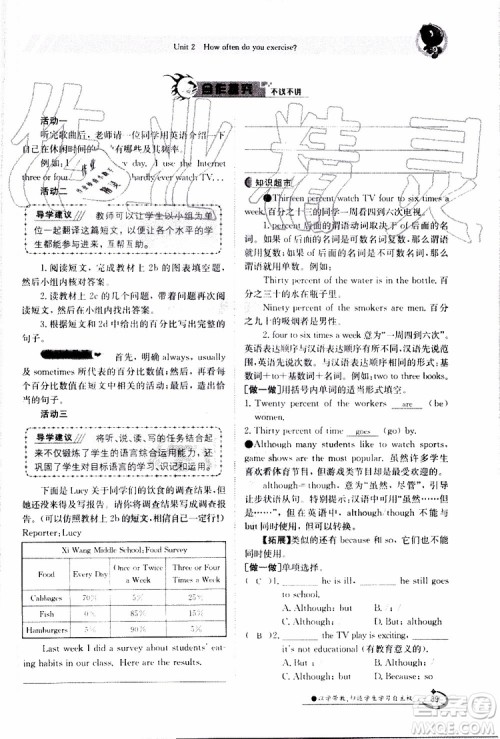 Unit 2 How often do you exercise?
合作探究 不议不讲
活动一
听完歌曲后,老师请一位同学用英语介绍一下
自己的
例如:I use the Internet
three or four day, hardly ever watch TV...
活动二
导学建议 教师可以让学生以小组为单
位翻译这篇短文,以便各个水平的学
生互帮互助。
1. 阅读短文,完成教材上 2b 的图表填空题,然
后在小组内核对答案。
2. 读教材上 2c 的几个问题,带着问题再次阅
读短文,然后在小组内核对答案。
3. 根据短文内容完成教材上 2d 的任务,写出完整的
句子。
首先,明确 always, usually
及 sometimes 所代表的百分比,然后写出符合短文内
容的句子!
活动三
导学建议 将听、说、读、写的任务结合起
来不仅锻炼了学生的语言综合运用能力,还
巩固了学生对目标语言的学习、识记和运用。
下面是 Lucy 关于同学们的饮食的调查结果,但
她还没有写报告。请为她的调查结果写一份报告。
(可以仿照教材上 2b 的短文,相信你写得更好!)
Reporter: Lucy
Xi Wang Middle School: Food Survey
Food Every Day Once or Twice a Week Three or Four Times a Week
Cabbages 70% 5% 25%
Fish 0% 85% 15%
Hamburgers 5% 5%
Last week I did a survey about students'
eating habits in our class. Here are the results.
知识超市
●Thirteen percent watch TV four to six times a
week. 百分之十三的同学一周看四到六次电视。
1. percent 后面的谓语动词取决于 of 后面的名
词。如果 of 后面的名词是可数名词的复数,那么谓
语动词用复数;如果 of 后面的名词是不可数名词,那
么谓语动词用单数。例如:
Thirty percent of the water is in the bottle. 百
分之三十的水在瓶子里。
Ninety percent of the smokers are men. 百分
之九十的吸烟者是男人。
2. four to six times a week 意为“一周四到六次”。
英语表达顺序与汉语表达顺序不同,汉语先说范围,
再说具体的次数;英语先说次数,再说范围。结构:基
数词+to+基数词+名词。例如:two to three books。
[做一做]用括号内单词的适当形式填空。
1. Twenty percent of the workers are (be)
women.
2. Thirty percent of time goes (go) by.
●Although many students like to watch sports,
game shows are the most popular. 虽然很多学生喜
欢看体育节目,但是游戏类节目是最受欢迎的。
although=though,意为“虽然;尽管”,引
导让步状语从句。注意:汉语中可以用“虽然……但
是……”,而英语中用了 although/though 就不能用
but 了。
【拓展】类似的还有 because 和 so。
[做一做]单项选择。
( C )1. he is ill, he still goes
to school.
A. Although; but B. / ; Although
C. Although; /
( B )2. the TV play is exciting,
it's not educational (有教育意义的).
A. Although; but B. Although; /
C. Because; so
以学带教,归还学生学习自主权 39